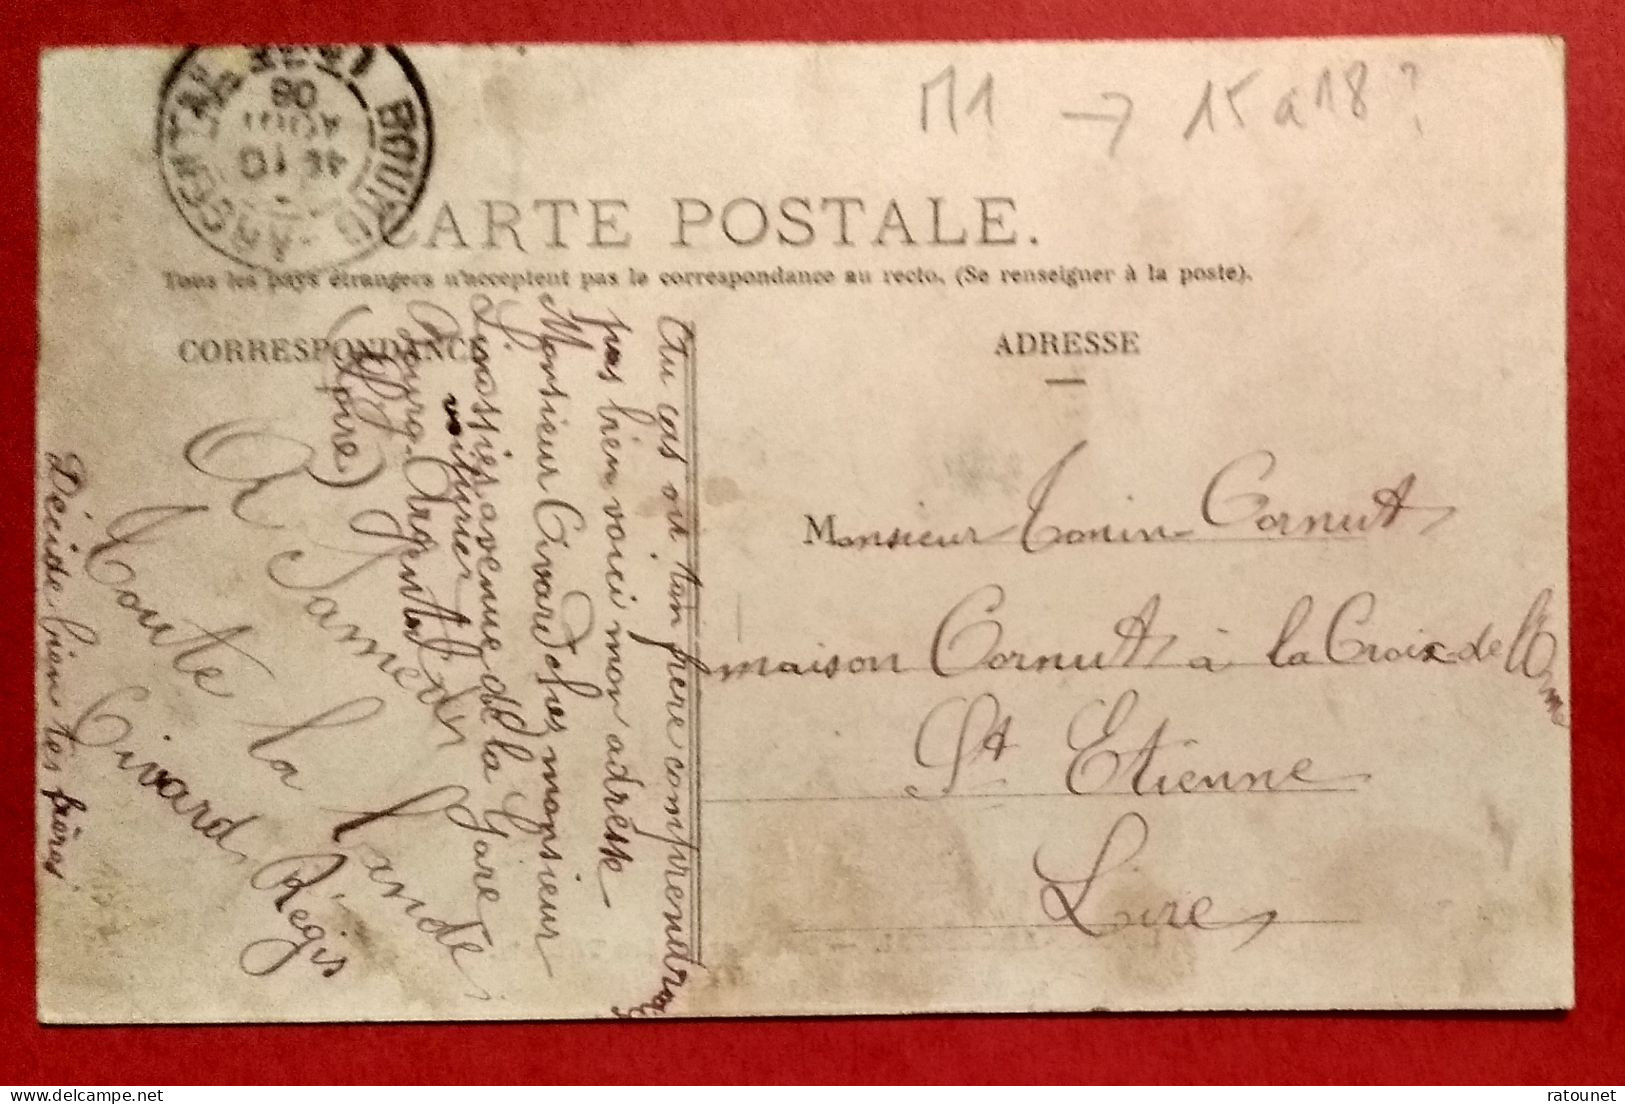 M1 → 15 a 18?
BOURG-ARGENTAL
4E 10
AOUT
08
CARTE POSTALE.
Tous les pays étrangers n'acceptent pas le correspondance au recto. (Se renseigner à la poste).
CORRESPONDANCE
ADRESSE
Au cas où ton frère comprendra
pas bien voici mon adresse
Monsieur Civard chez monsieur
avenue de la Gare
voiturier
Bourg-Argental
(Loire)
A Samedi
toute la bande
Civard Régis
Décide bien tes frères
Monsieur Tonin Cornut
maison Cornut à la Croix de l'Orme
St Etienne
Loire
ratounet